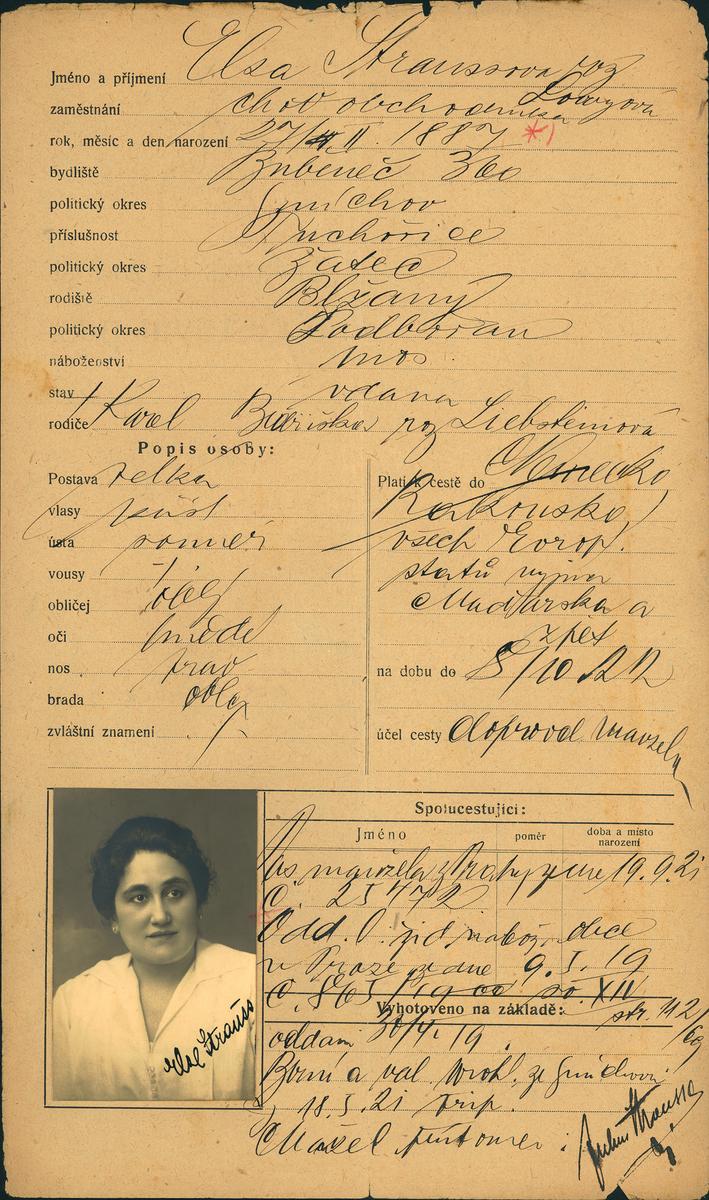 Jméno a příjmení Elsa Straussova roz
Löwyová
zaměstnání choť obchodníka
rok, měsíc a den narození 27/ II. 1887 *)
bydliště Bubeneč 360
politický okres Smíchov
příslušnost Tuchořice
politický okres Žatec
rodiště Blžany
politický okres Podbořan
náboženství mos.
stav vdana
rodiče Karel roz Liebsteinová
Popis osoby:
Postava velka
vlasy
ústa
vousy /
obličej obly
oči hnědé
nos prav
brada obla
zvláštní znamení /
Platí k cestě do Německo,
Rakousko,
všech Evrop.
států vyjma
Maďarska a
zpět
na dobu do 8/10 22
účel cesty doprovod manžela
Spolucestující:
Jméno poměr doba a místo
narození
manžela z Prahy ze dne 19.9.21
Č. 25472
Odd. l. žid. nábož. obce
v Praze ze dne 9.I.19
č. so. XIII
Vyhotoveno na základě: str. 112/
69
oddaní 19.
a ze Smíchova
18.I.21
Manžel přítomen:
Else Strauss
Strauss